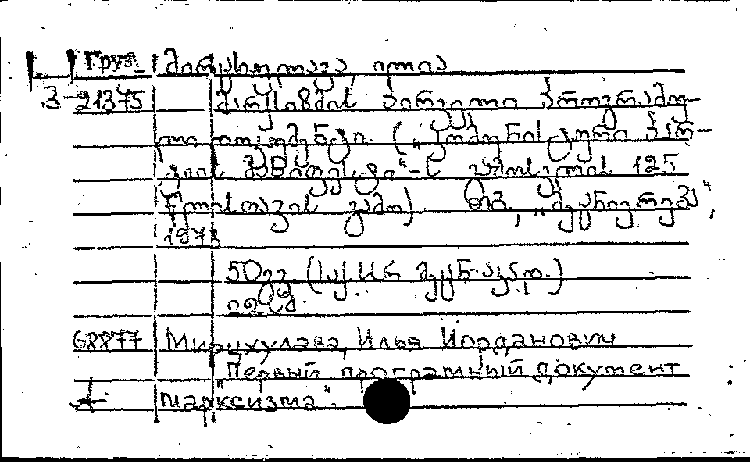 Груз. მირცხულავა, ილია
3-21375 მარქსიზმის პირველი პროგრამუ-
ლი დოკუმენტი. („კომუნისტური პარ-
ტიის მანიფესტი“-ს გამოსვლის 125
წლისთავის გამო). თბ., „მეცნიერება“,
1973
50გვ. (საქ. სსრ მეცნ. აკად.)
22 სმ.
68877 Мирцхулава, Илья Иорданович
"Первый програмный документ
марксизма".